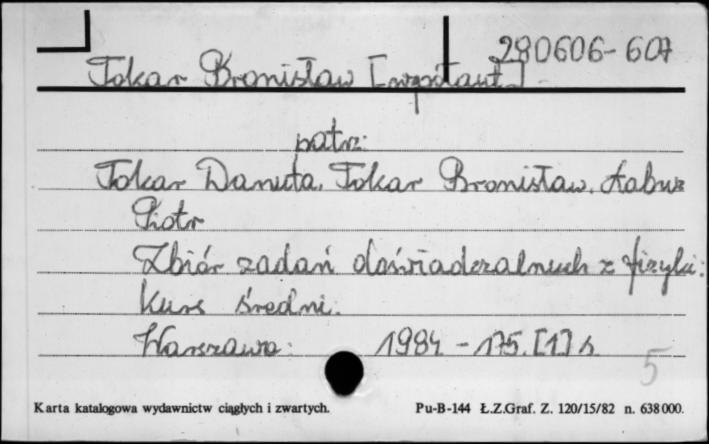 280606-607
Tokar Bronisław [współaut.]
patrz:
Tokar Danuta, Tokar Bronisław, Łabuz
Piotr
Zbiór zadań doświadczalnych z fizyki:
kurs średni.
Warszawa: 1984 - 175, [1] s.
5
Karta katalogowa wydawnictw ciągłych i zwartych. Pu-B-144 Ł.Z.Graf. Z. 120/15/82 n. 638000.